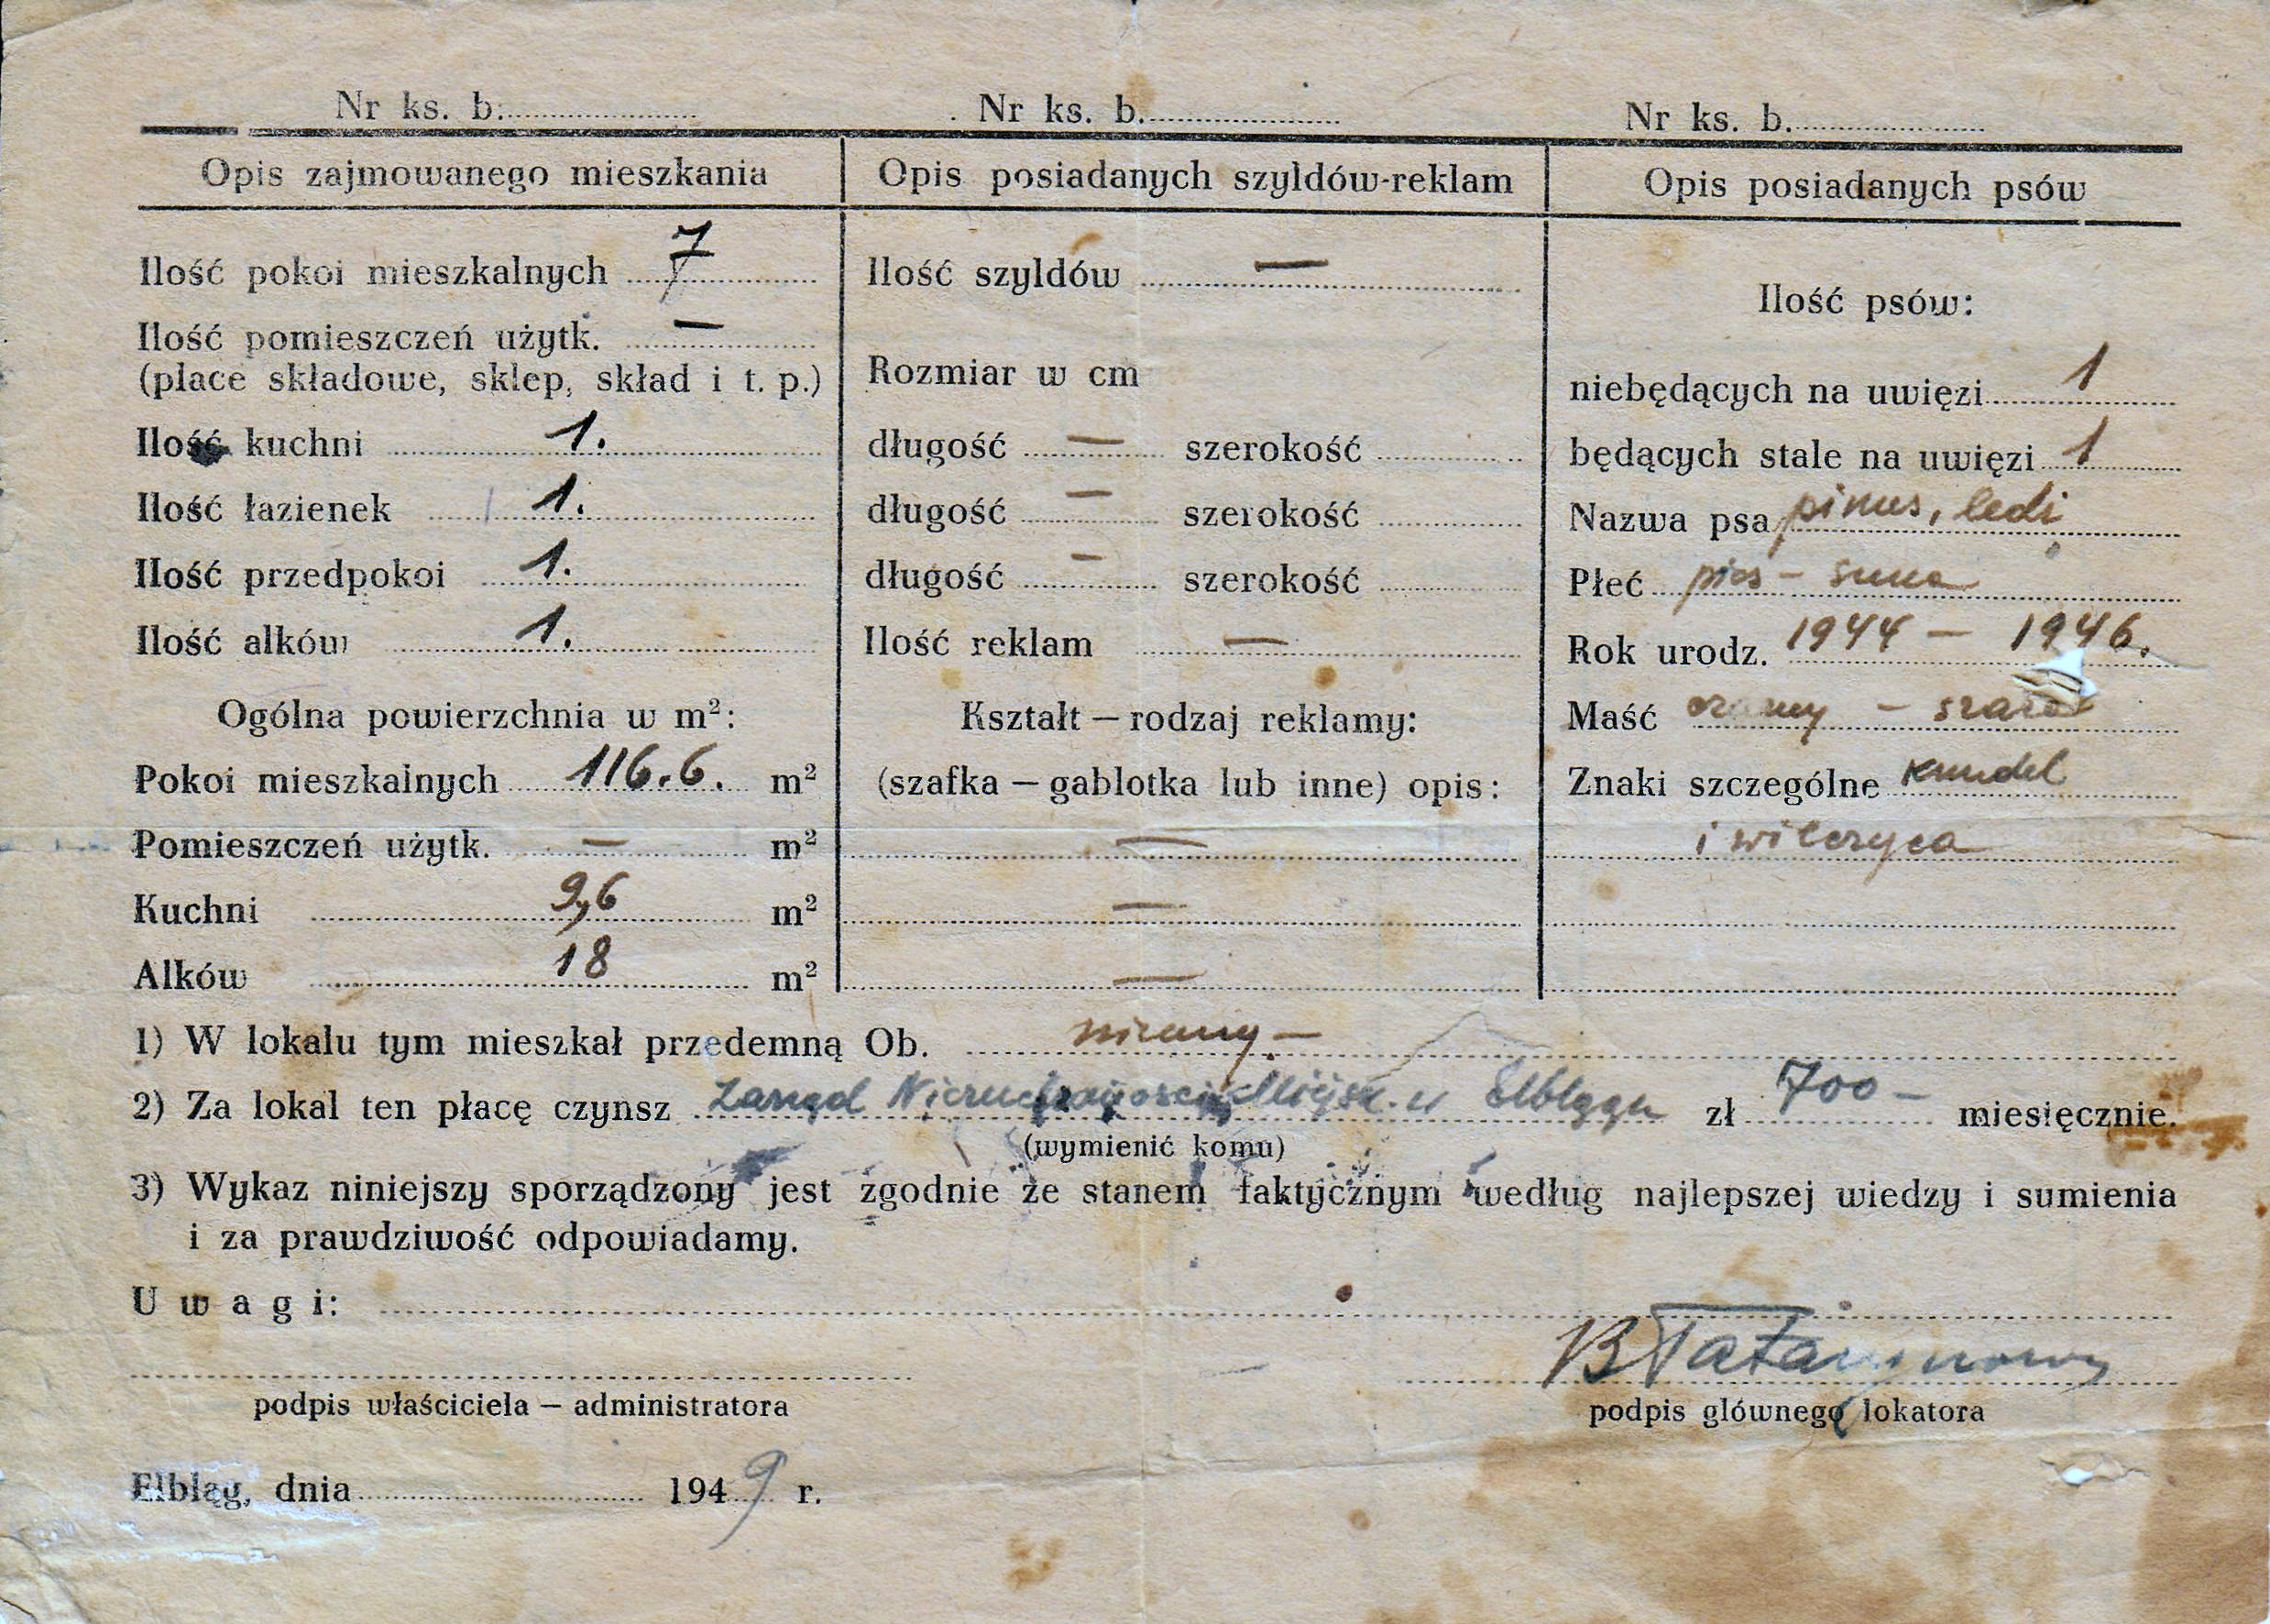 Nr ks. b.
Nr ks. b.
Nr ks. b.
Opis zajmowanego mieszkania
Ilość pokoi mieszkalnych 7
Ilość pomieszczeń użytk. —
(place składowe, sklep, skład i t. p.)
Ilość kuchni 1.
Ilość łazienek 1.
Ilość przedpokoi 1.
Ilość alków 1.
Ogólna powierzchnia w m²:
Pokoi mieszkalnych 116.6. m²
Pomieszczeń użytk. — m²
Kuchni 9,6 m²
Alków 18 m²
Opis posiadanych szyldów-reklam
Ilość szyldów —
Rozmiar w cm
długość — szerokość
długość — szerokość
długość — szerokość
Ilość reklam —
Kształt — rodzaj reklamy:
(szafka — gablotka lub inne) opis:
—
—
—
Opis posiadanych psów
Ilość psów:
niebędących na uwięzi 1
będących stale na uwięzi 1
Nazwa psa pinus, ledi
Płeć pies – suka
Rok urodz. 1944 – 1946.
Maść czarny – szara
Znaki szczególne kundel
i wilczyca
1) W lokalu tym mieszkał przedemną Ob.
2) Za lokal ten płacę czynsz Zarząd Nieruchomości Miejsk. w Elblągu zł 700 – miesięcznie.
(wymienić komu)
3) Wykaz niniejszy sporządzony jest zgodnie ze stanem faktycznym według najlepszej wiedzy i sumienia
i za prawdziwość odpowiadamy.
Uwagi:
podpis właściciela — administratora
podpis głównego lokatora
Elbląg, dnia 1949 r.